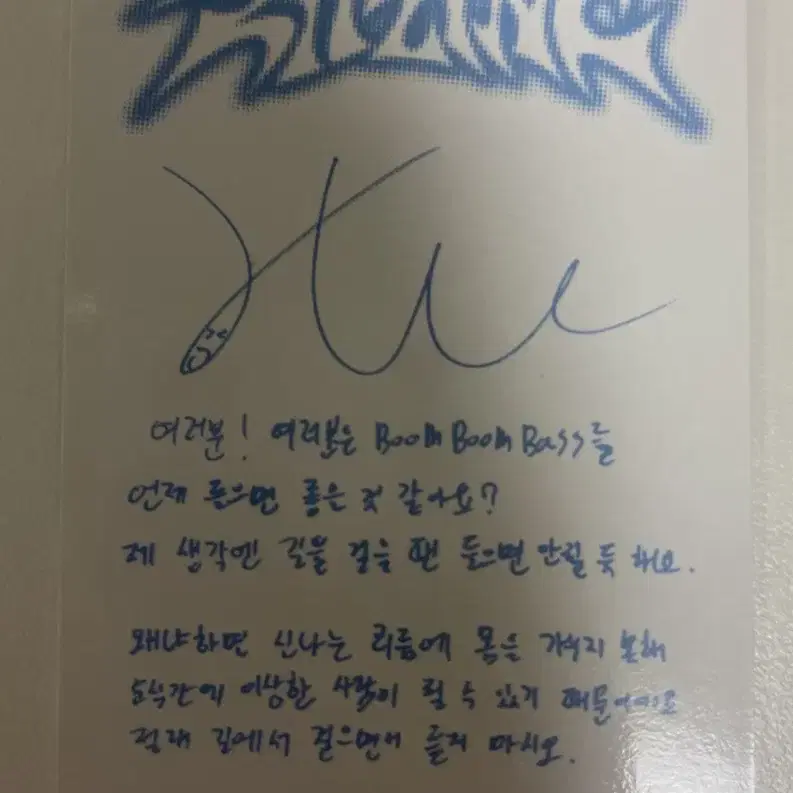 여러분! 여러분은 BOOM BOOM BASS를
언제 들으면 좋은 것 같아요?
제 생각엔 길을 걸을 땐 들으면 안될 듯 해요.
왜냐하면 신나는 리듬에 몸을 가누지 못해
순식간에 이상한 사람이 될 수 있기 때문이에요
절대 길에서 걸으면서 듣지 마시오.